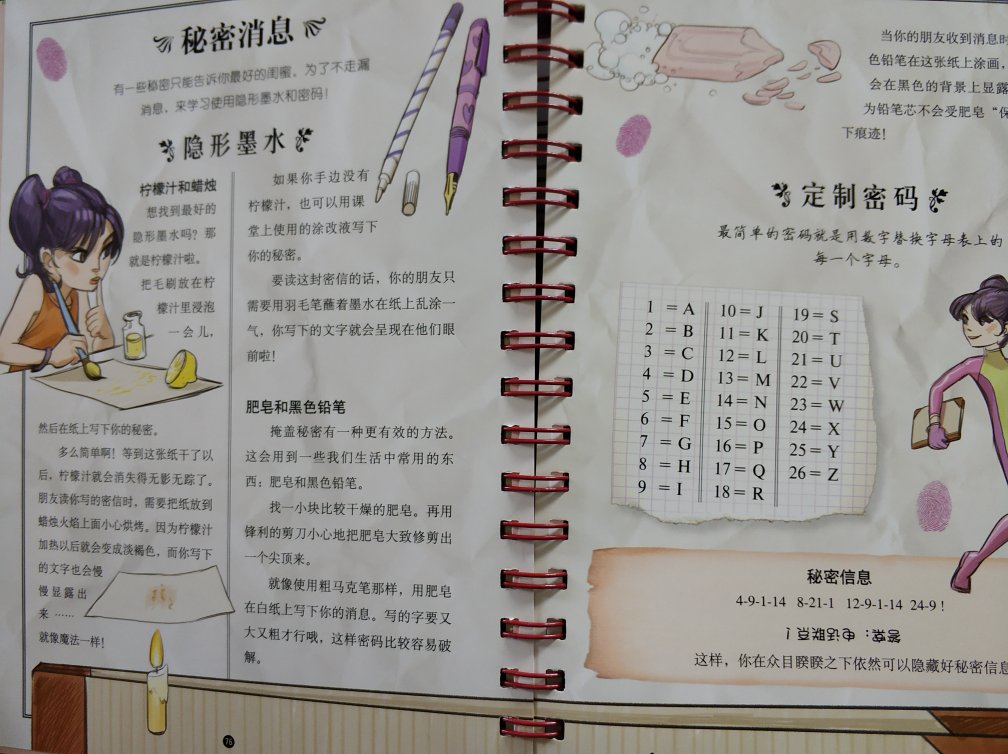 秘密消息
有一些秘密只能告诉你最好的闺蜜。为了不走漏
消息，来学习使用隐形墨水和密码！
隐形墨水
柠檬汁和蜡烛
想找到最好的
隐形墨水吗？那
就是柠檬汁啦。
把毛刷放在柠
檬汁里浸泡
一会儿，
然后在纸上写下你的秘密。
多么简单啊！等到这张纸干了以
后，柠檬汁就会消失得无影无踪了。
朋友读你写的密信时，需要把纸放到
蜡烛火焰上面小心烘烤。因为柠檬汁
加热以后就会变成淡褐色，而你写下
的文字也会慢
慢显露出
来……
就像魔法一样！
如果你手边没有
柠檬汁，也可以用课
堂上使用的涂改液写下
你的秘密。
要读这封密信的话，你的朋友只
需要用羽毛笔蘸着墨水在纸上乱涂一
气，你写下的文字就会呈现在他们眼
前啦！
肥皂和黑色铅笔
掩盖秘密有一种更有效的方法。
这会用到一些我们生活中常用的东
西：肥皂和黑色铅笔。
找一小块比较干燥的肥皂。再用
锋利的剪刀小心地把肥皂大致修剪出
一个尖顶来。
就像使用粗马克笔那样，用肥皂
在白纸上写下你的消息。写的字要又
大又粗才行哦，这样密码比较容易破
解。
76
当你的朋友收到消息时
色铅笔在这张纸上涂画，
会在黑色的背景上显露
为铅笔芯不会受肥皂“保
下痕迹！
定制密码
最简单的密码就是用数字替换字母表上的
每一个字母。
1 = A
2 = B
3 = C
4 = D
5 = E
6 = F
7 = G
8 = H
9 = I
10 = J
11 = K
12 = L
13 = M
14 = N
15 = O
16 = P
17 = Q
18 = R
19 = S
20 = T
21 = U
22 = V
23 = W
24 = X
25 = Y
26 = Z
秘密信息
4-9-1-14 8-21-1 12-9-1-14 24-9！
答案：电话联系！
这样，你在众目睽睽之下依然可以隐藏好秘密信息